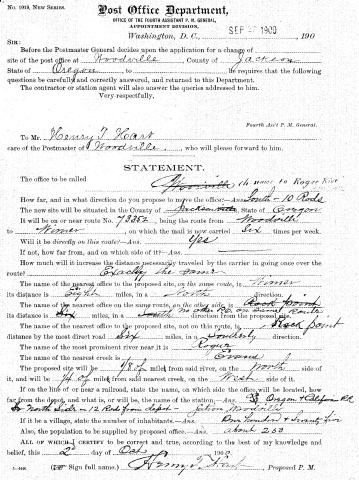 No. 1019, NEW SERIES.
Post Office Department,
OFFICE OF THE FOURTH ASSISTANT P. M. GENERAL,
APPOINTMENT DIVISION,
Washington, D. C., SEP 1909, 190
SIR:
Before the Postmaster General decides upon the application for a change of
site of the post office at Woodville, County of Jackson
State of Oregon to it requires that the following
questions be carefully and correctly answered, and returned to this Department.
The contractor or station agent will also answer the queries addressed to him.
Very respectfully,
Fourth Ass't P. M. General.
To Mr. Henry T Hoart
care of the Postmaster of Woodville, who will please forward to him.
STATEMENT.
The office to be called Woodville ch name to Rogue River
How far, and in what direction, do you propose to move the office?—Ans. South - 10 Rods
The new site will be situated in the County of Jackson, State of Oregon
It will be on or near route No. 73352, being the route from Woodville
to Wimer, on which the mail is now carried Six times per week.
Will it be directly on this route?—Ans. Yes
If not, how far from, and on which side of it?—Ans.
How much will it increase the distance necessarily traveled by the carrier in going once over the
route? Exactly the same
The name of the nearest office to the proposed site, on the same route, is Wimer
its distance is Eight miles in North direction.
The name of the nearest office on the same route, on the other side, is Rock Point
its distance is Six miles in a South no other P.O. on same route from the proposed site
The name of the nearest office to the proposed, not on this route, is Rock point
distance by the most direct road Six miles in a Southerly direction.
The name of the most prominent river near it is Rogue
The name of the nearest creek is Evans
The proposed site will be 1/8 of miles from said river, on the North side of
it, and will be 1/4 of miles from said nearest creek, on the West side of it.
If on the line of or near a railroad, state the name, on which side the office, will be located, how
far from the depot, and what is, or will be, the name of the station.—Ans. Oregon & California RR
North Side - 12 Rods from depot - Woodville
If it be a village, state the number of inhabitants.—Ans. One hundred & Seventy five
Also, the population to be supplied by proposed office.—Ans. about 203
ALL OF WHICH I CERTIFY to be correct and true, according to the best of my knowledge and
belief, this 2d day of Oct 190
Sign full name, Henry T. Hoart Proposed P. M.